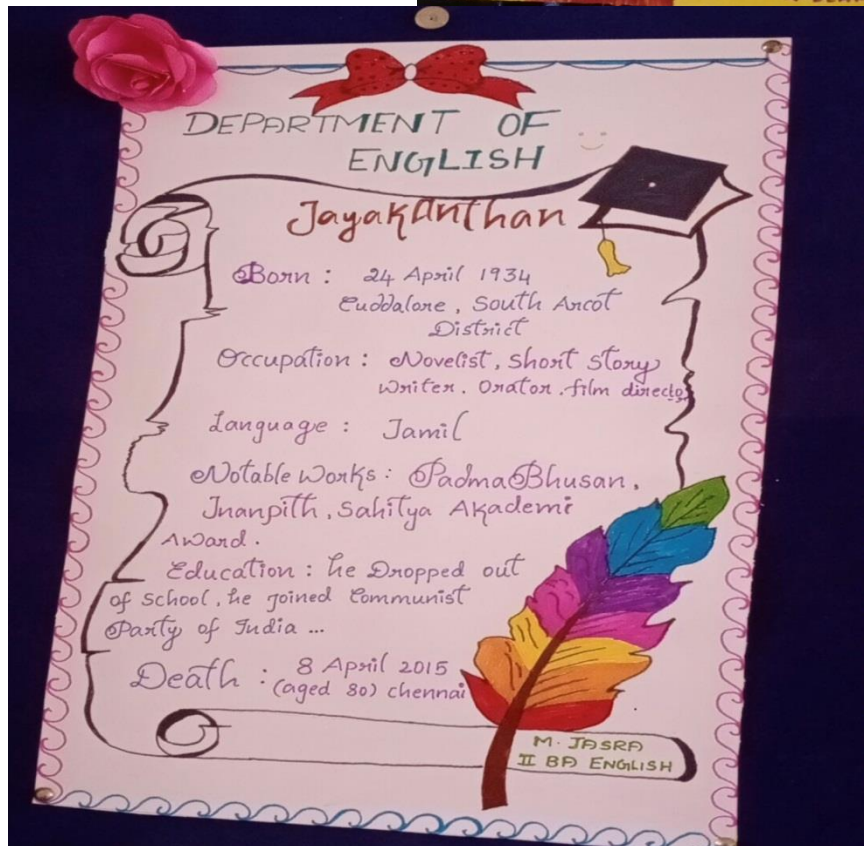 DEPARTMENT OF
ENGLISH
JayakAnthan
Born : 24 April 1934
Cuddalore, South Arcot
District
Occupation : Novelist, Short Story
Writer. Orator. film director
Language : Tamil
Notable Works : PadmaBhusan,
Jnanpith, Sahitya Akademi
Award.
Education : he Dropped out
of School, he joined Communist
Party of India ...
Death : 8 April 2015
(aged 80) chennai
M. JASRA
II BA ENGLISH